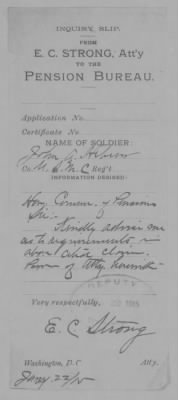 INQUIRY SLIP.
FROM
E. C. STRONG, Att'y
TO THE
PENSION BUREAU.
Application No.
Certificate No.
NAME OF SOLDIER:
John A.
Co. U.S.M.C Reg't
INFORMATION DESIRED:
Hon. Comm. of Pensions
Sir:
Kindly advise me
as to requirements in
above cited claim.
Power of Atty. herewith
DEPUTY
Very respectfully,
E C Strong
Washington, D. C. Att'y.